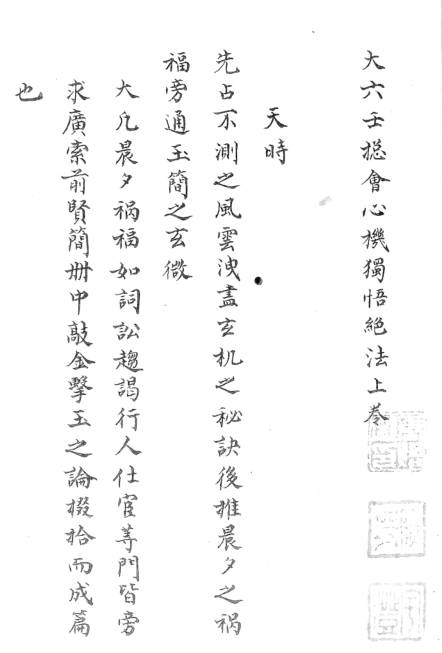 大六壬捴會心機獨悟絕法上卷
天時
先占不測之風雲洩盡玄机之秘訣後推晨夕之禍
福旁通玉簡之玄微
大凡晨夕禍福如詞訟趨謁行人仕宦等門皆旁
求廣索前賢簡冊中敲金擊玉之論掇拾而成篇
也